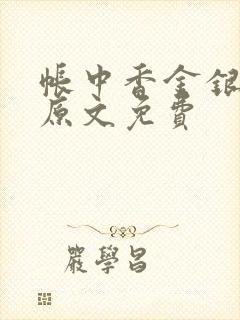 帳中香金銀
原文免費
嚴學昌